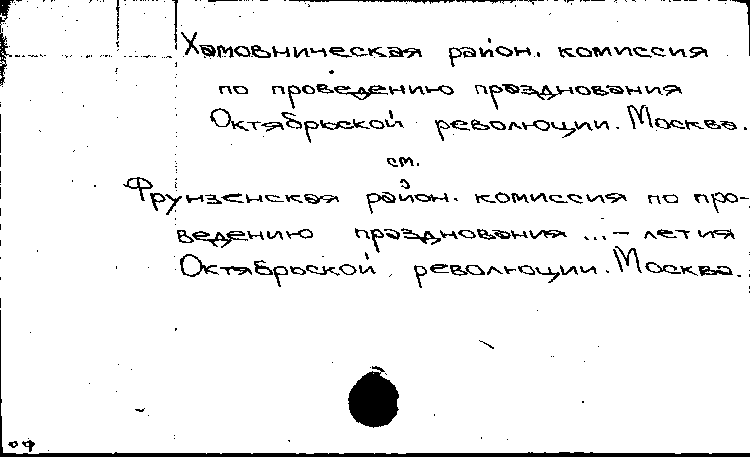 Хамовническая район. комиссия
по проведению празднования
Октябрьской революции. Москва.
см.
Фрунзенская район. комиссия по про-
ведению празднования ...-летия
Октябрьской революции. Москва.